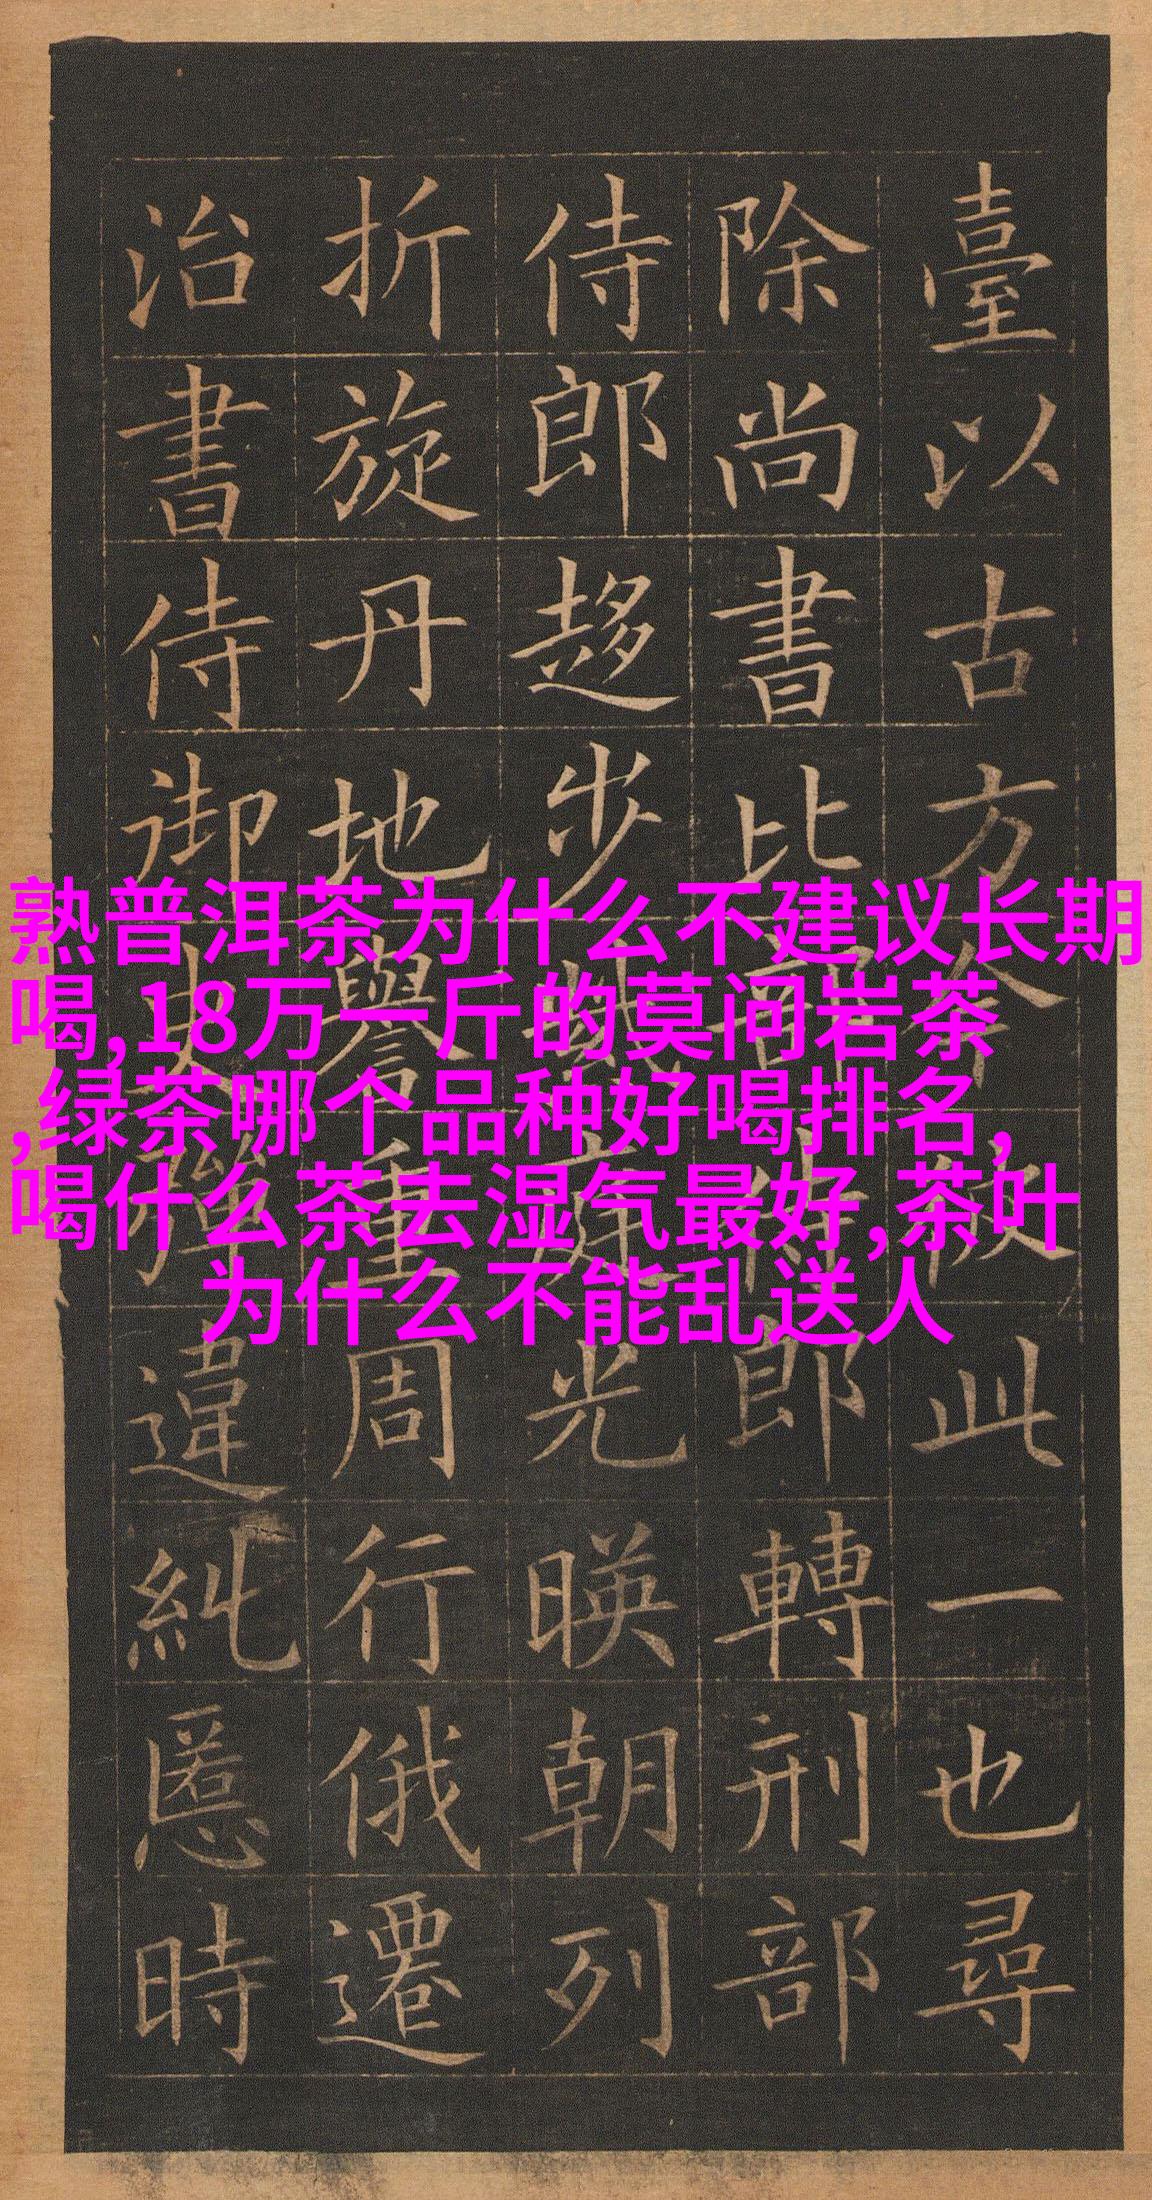 臺以古方今此一也尋
除尚書比部侍郎轉刑部
侍郎趍步庭光暎朝列
折旋丹地譽重周行俄遷
治書侍御史彈違糺慝時
熟普洱茶为什么不建议长期
喝,18万一斤的莫问岩茶
,绿茶哪个品种好喝排名,
喝什么茶去湿气最好,茶叶
为什么不能乱送人